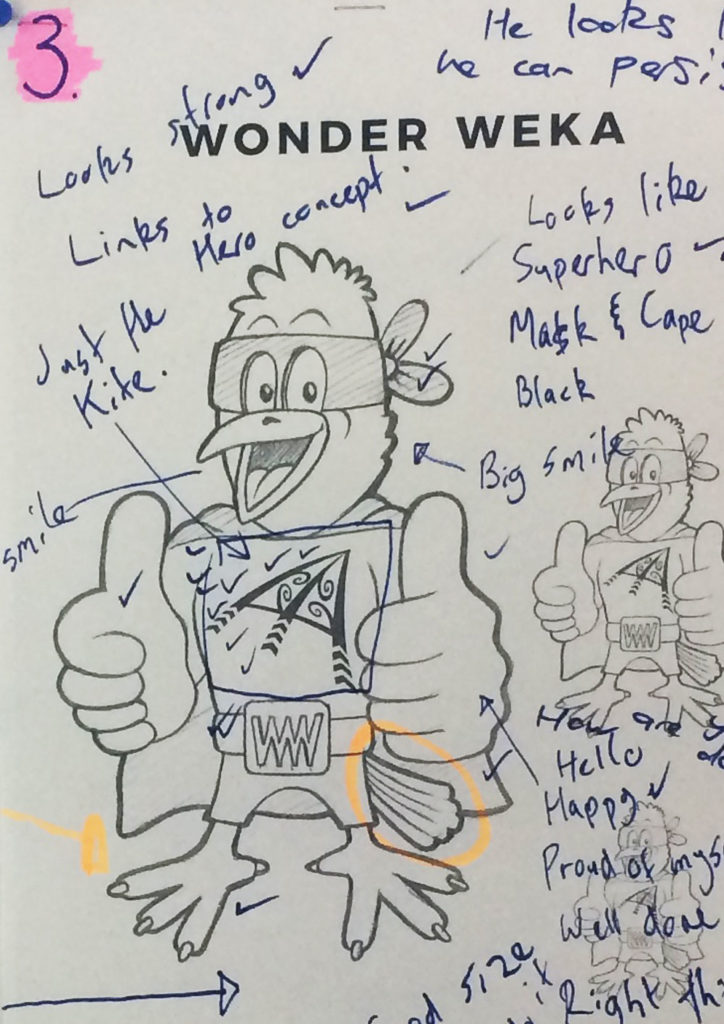 3.
He looks
he can
Looks strong
WONDER WEKA
Links to
Hero concept.
Looks like
Superhero
Mask & Cape
Black
Just the
Kite.
Big smile
smile
WW
WW
How are
Hello
Happy
Proud of
Well done
size
Right